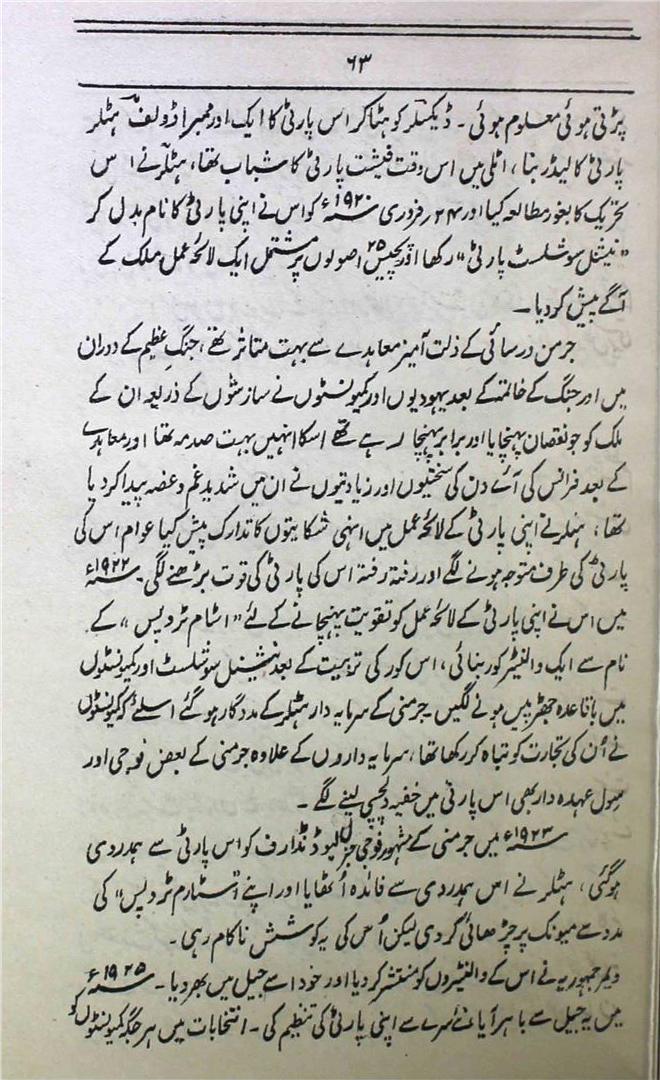 ۶۳
پڑتی ہوئی معلوم ہوئی ۔ ڈیکسلر کو ہٹا کر اس پارٹی کا ایک اور ممبر اڈولف ہٹلر
پارٹی کا لیڈر بنا ، اٹلی میں اس وقت فیشسٹ پارٹی کا شباب تھا ، ہٹلر نے اس
تحریک کا بغور مطالعہ کیا اور ۲۴ ر فروری ۱۹۲۰ء کو اس نے اپنی پارٹی کا نام بدل کر
”نیشنل سوشلسٹ پارٹی“ رکھا اور پچیس ۲۵ اصولوں پر مشتمل ایک لائحہ عمل ملک کے
آگے پیش کر دیا ۔
جرمن ورسائی کے ذلت آمیز معاہدے سے بہت متاثر تھے ، جنگِ عظیم کے دوران
میں اور جنگ کے خاتمہ کے بعد یہودیوں اور کمیونسٹوں نے سازشوں کے ذریعہ ان کے
ملک کو جو نقصان پہنچایا اور برابر پہنچا رہے تھے اسکا انہیں بہت صدمہ تھا اور معاہدے
کے بعد فرانس کی آئے دن کی سختیوں اور زیادتیوں نے ان میں شدید غم و غصہ پیدا کر دیا
تھا ، ہٹلر نے اپنی پارٹی کے لائحہ عمل میں انہی شکایتوں کا تدارک پیش کیا عوام اس کی
پارٹی کی طرف متوجہ ہونے لگے اور رفتہ رفتہ اس کی پارٹی کی قوت بڑھنے لگی ۔ ۱۹۲۲ء
میں اس نے اپنی پارٹی کے لائحہ عمل کو تقویت پہنچانے کے لئے ”اسٹام ٹروپس“ کے
نام سے ایک والنٹیر کور بنائی ، اس کور کی تربیت کے بعد نیشنل سوشلسٹ اور کمیونسٹوں
میں باقاعدہ جھڑپیں ہونے لگیں ۔ جرمنی کے سرمایہ دار ہٹلر کے مددگار ہو گئے اسلئے کہ کمیونسٹوں
نے اُن کی تجارت کو تباہ کر رکھا تھا ، سرمایہ داروں کے علاوہ جرمنی کے بعض فوجی اور
سول عہدہ دار بھی اس پارٹی میں خفیہ دلچسپی لینے لگے ۔
۱۹۲۳ء میں جرمنی کے مشہور فوجی جنرل لیوڈنڈارف کو اس پارٹی سے ہمدردی
ہو گئی ، ہٹلر نے اس ہمدردی سے فائدہ اُٹھایا اور اپنے ”اسٹارم ٹروپس“ کی
مدد سے میونک پر چڑھائی کر دی لیکن اُس کی یہ کوشش ناکام رہی ۔
ویمر جمہوریہ نے اس کے والنٹیروں کو منتشر کر دیا اور خود اسے جیل میں بھر دیا ۔ ۱۹۲۵ء
میں یہ جیل سے باہر آیا نئے سرے سے اپنی پارٹی کی تنظیم کی ۔ انتخابات میں ہر جگہ کمیونسٹوں کو